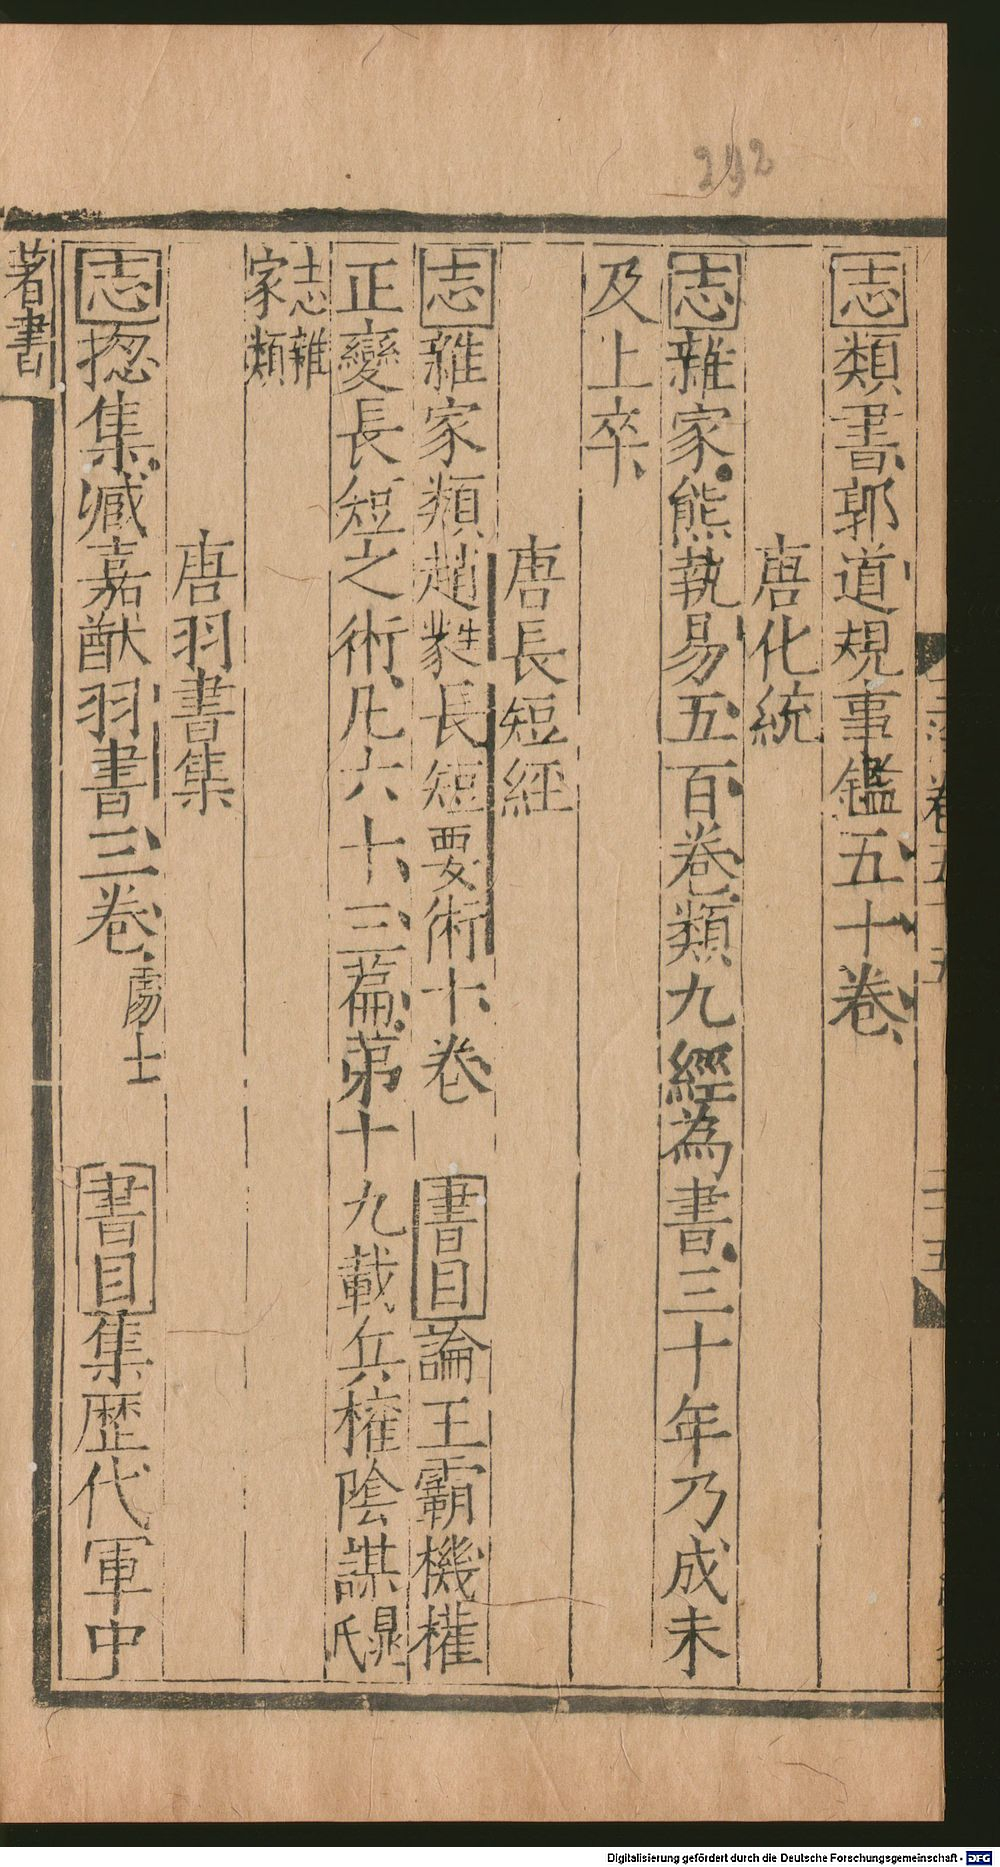 292
志類書郭道規事鑑五十卷
唐化統
志雜家熊執易五百卷類九經為書三十年乃成未
及上卒
唐長短經
志雜家類趙蕤長短要術十卷 書目論王霸機權
正變長短之術凡六十三篇第十九載兵權陰謀晁氏
志雜家類
唐羽書集
志揔集臧嘉猷羽書三卷處士 書目集歷代軍中
著書
Digitalisierung gefördert durch die Deutsche Forschungsgemeinschaft - DFG